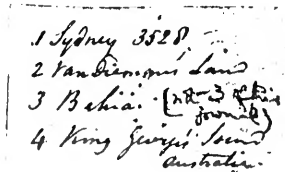 1 Sydney 3528
2 Van Diemen's Land
3 Bahia. (not in
journal)
4 King George's Sound
Australia.